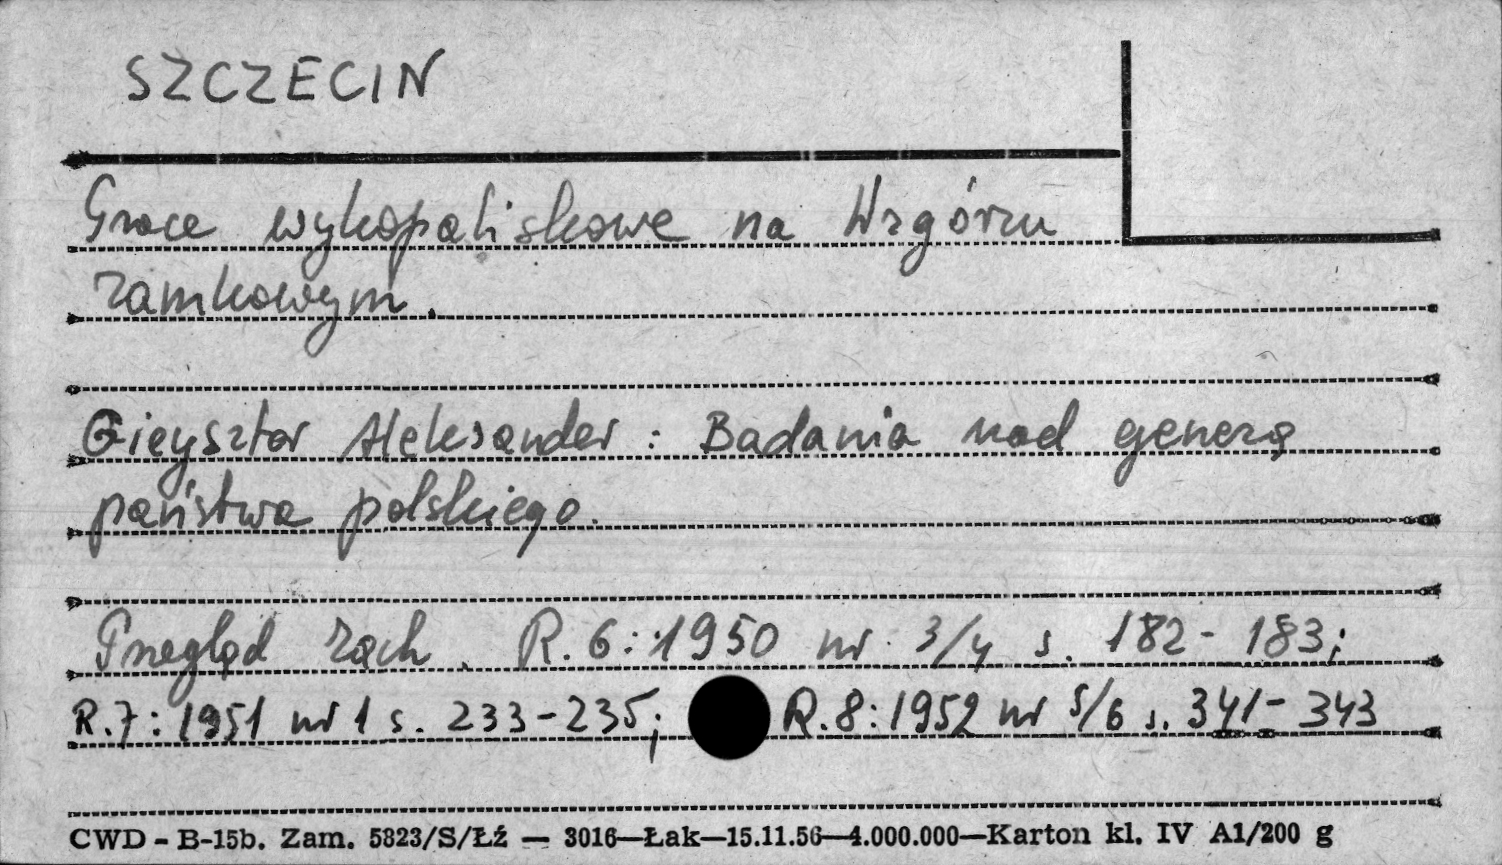 SZCZECIN
Prace wykopaliskowe na Wzgórzu
zamkowym.
Gieysztor Aleksander: Badania nad genezą
państwa polskiego.
Przegląd Zach. R.6:1950 nr 3/4 s. 182-183;
R.7:1951 nr 1 s. 233-235; R.8:1952 nr 5/6 s. 341-343
CWD - B-15b. Zam. 5823/S/Łź — 3016—Łak—15.11.56—4.000.000—Karton kl. IV A1/200 g